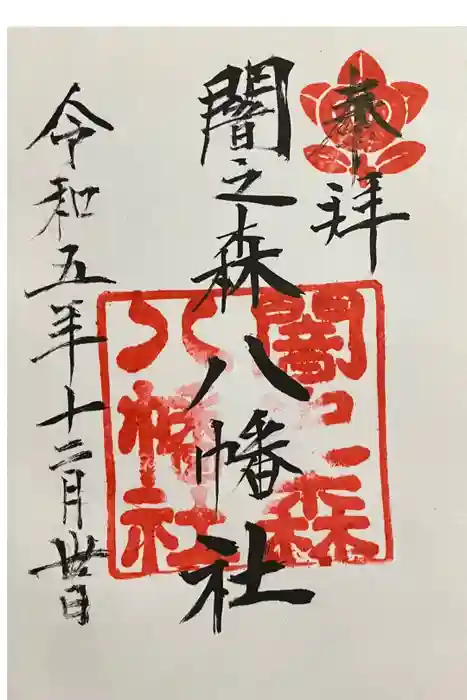 奉拝
闇之森八幡社
令和五年十二月丗日
闇之森
八幡社